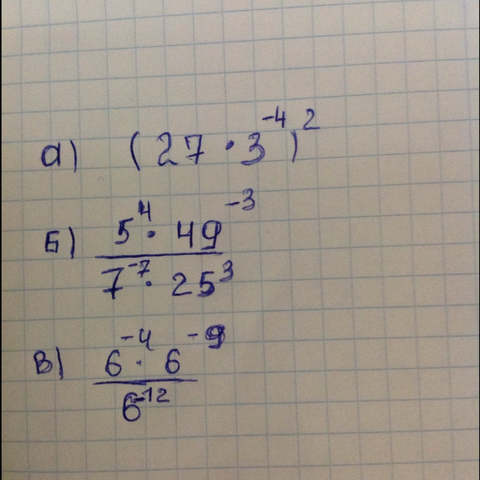 а) (27 · 3⁻⁴)²
Б) 5⁴ · 49⁻³
7⁻⁷ · 25³
в) 6⁻⁴ · 6⁻⁹
6⁻¹²